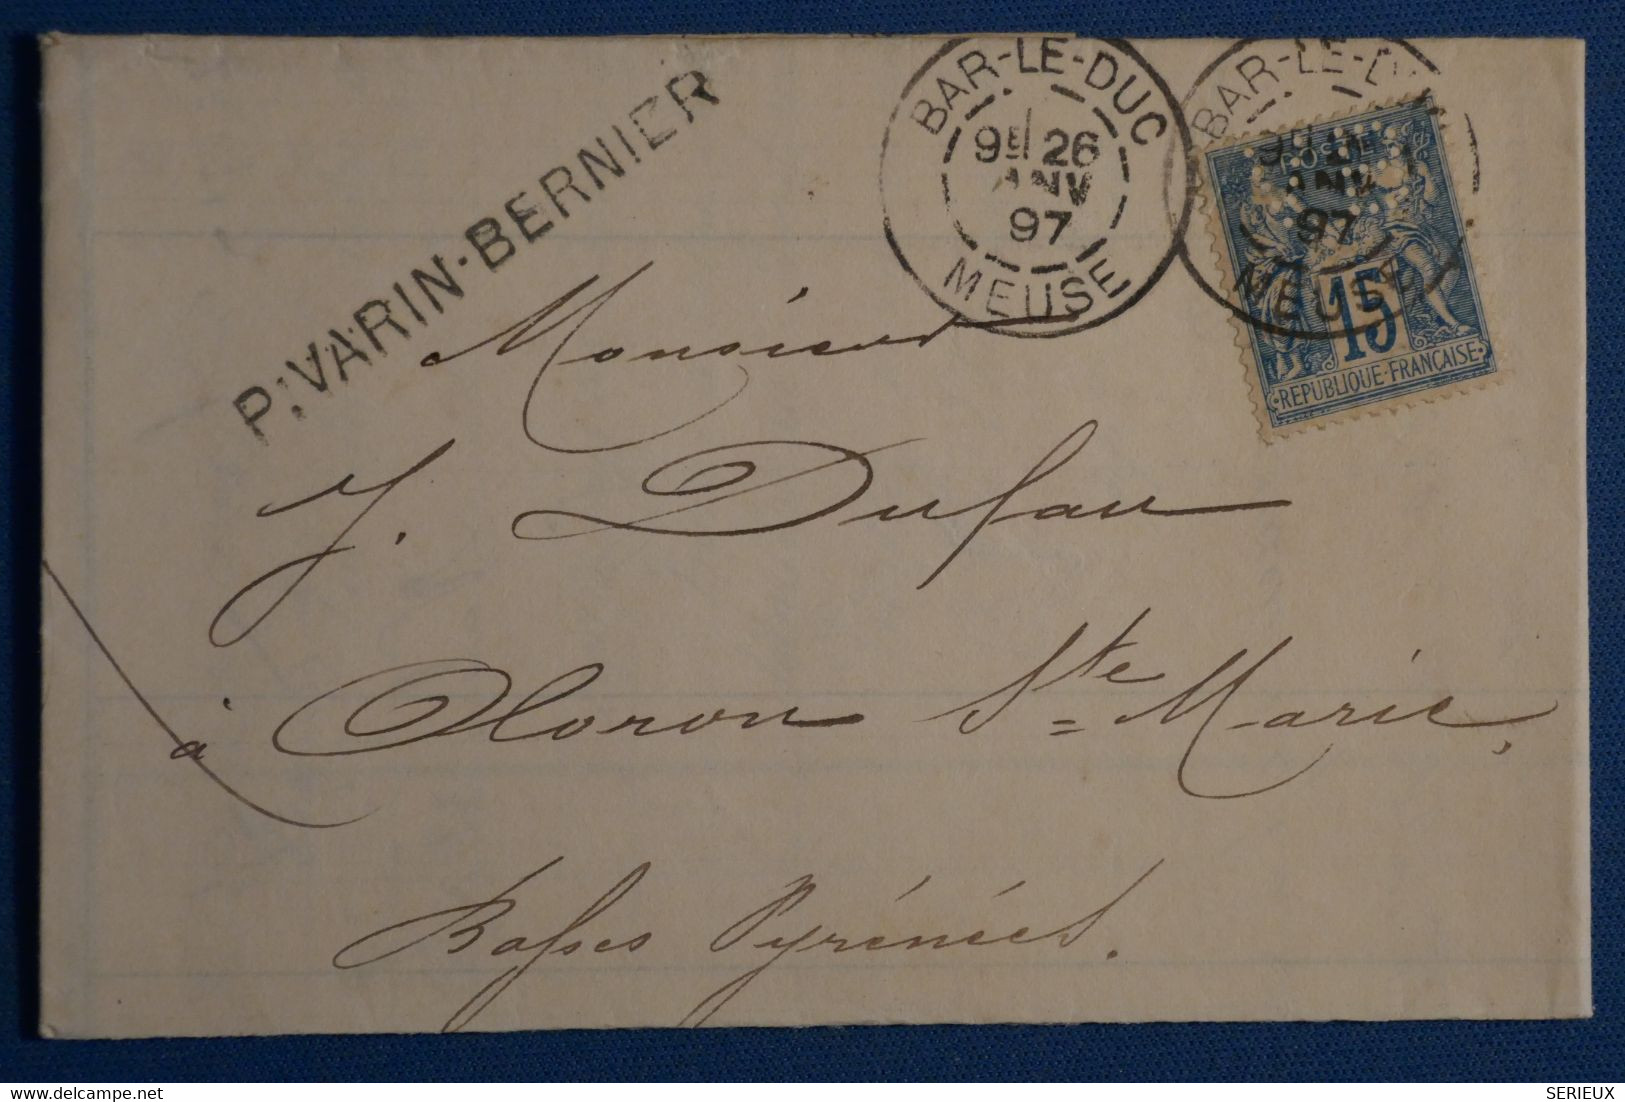 P. VARIN-BERNIER
BAR-LE-DUC
9E 26
JANV
97
MEUSE
BAR-LE-DUC
97
MEUSE
POSTES
15
REPUBLIQUE·FRANÇAISE
Monsieur
J. Dufau
à Oloron Ste Marie,
Basses Pyrénées.
SERIEUX